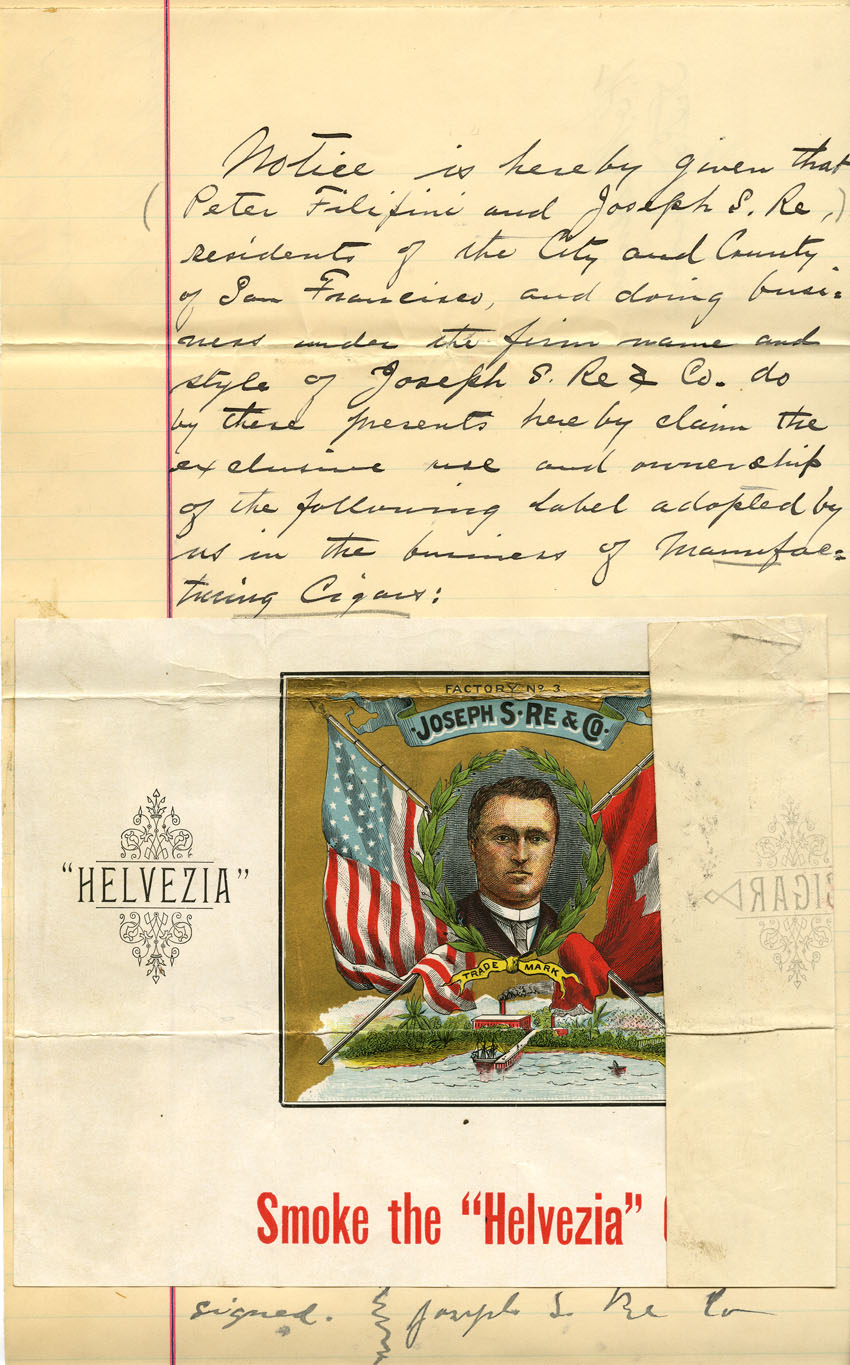 Notice is hereby given that
(Peter Filipini and Joseph S. Re,)
residents of the City and County
of San Francisco, and doing busi=
ness under the firm name and
style of Joseph S. Re & Co. do
by these presents hereby claim the
exclusive use and ownership
of the following Label adopted by
us in the business of Manufac=
turing Cigars:
FACTORY No 3
JOSEPH S. RE & CO.
"HELVEZIA"
CIGAR
TRADE MARK
Smoke the "Helvezia"
signed. Joseph S. Re Co